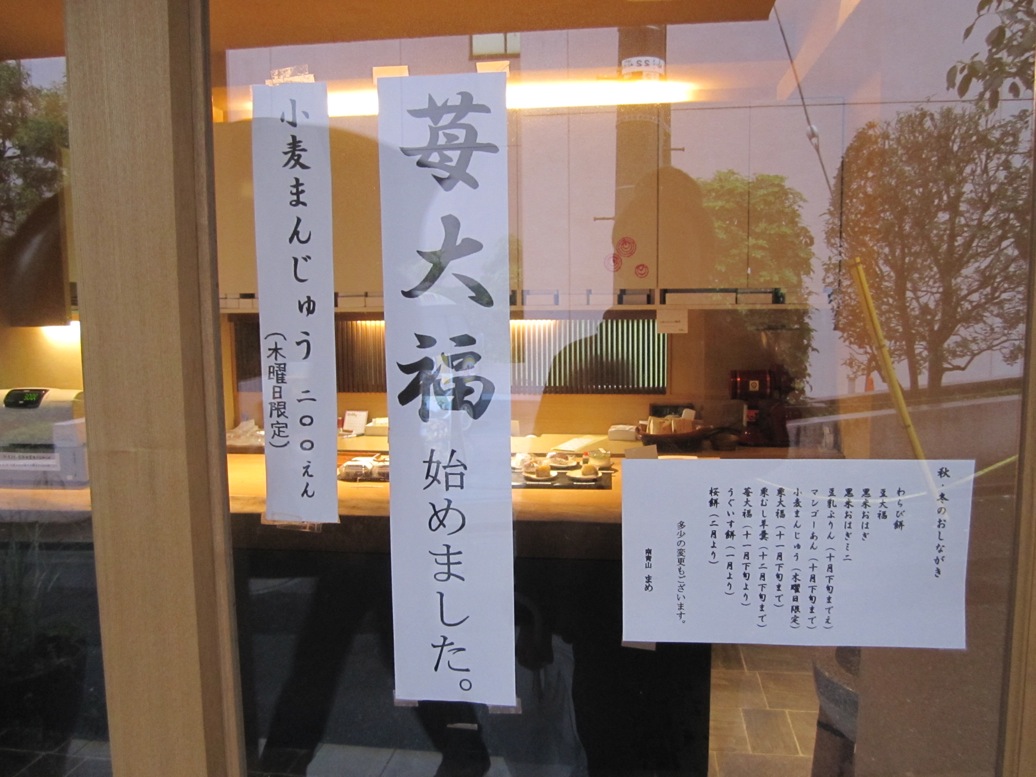 小麦まんじゅう 二〇〇えん
(木曜日限定)
苺大福始めました。
秋・冬のおしながき
わらび餅
豆大福
黒米おはぎ
黒米おはぎミニ
豆乳ぷりん(十月下旬までえ)
マンゴーあん(十月下旬まで)
小麦まんじゅう(木曜日限定)
栗大福(十一月下旬まで)
栗むし羊羹(十二月下旬まで)
苺大福(十一月下旬より)
うぐいす餅(一月より)
桜餅(二月より)
多少の変更もございます。
南青山 まめ